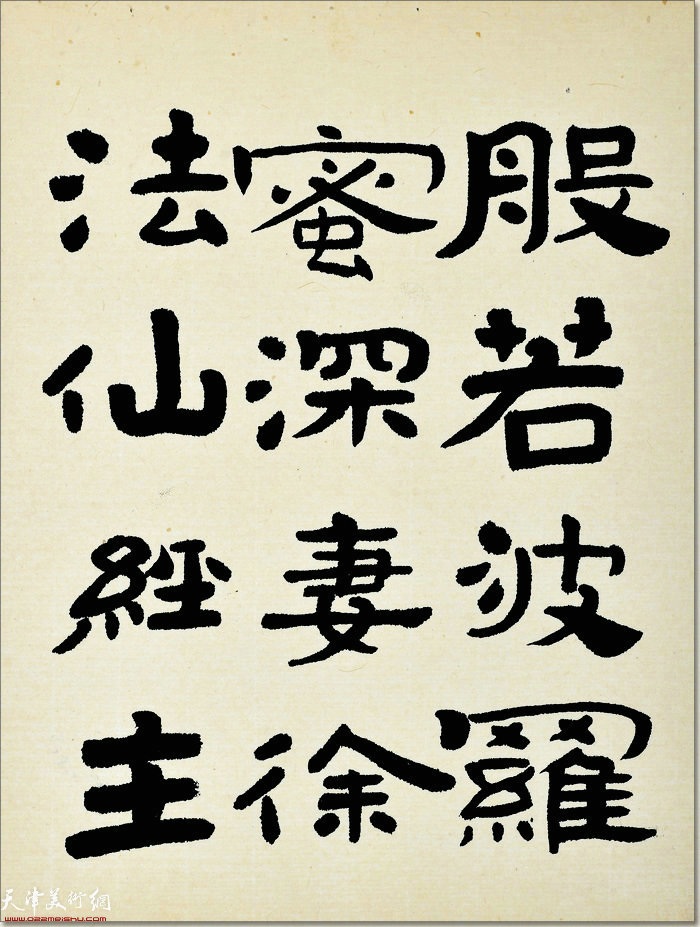 般若波羅
蜜深妻徐
法仙經主
天津美術網
www.022meishu.com